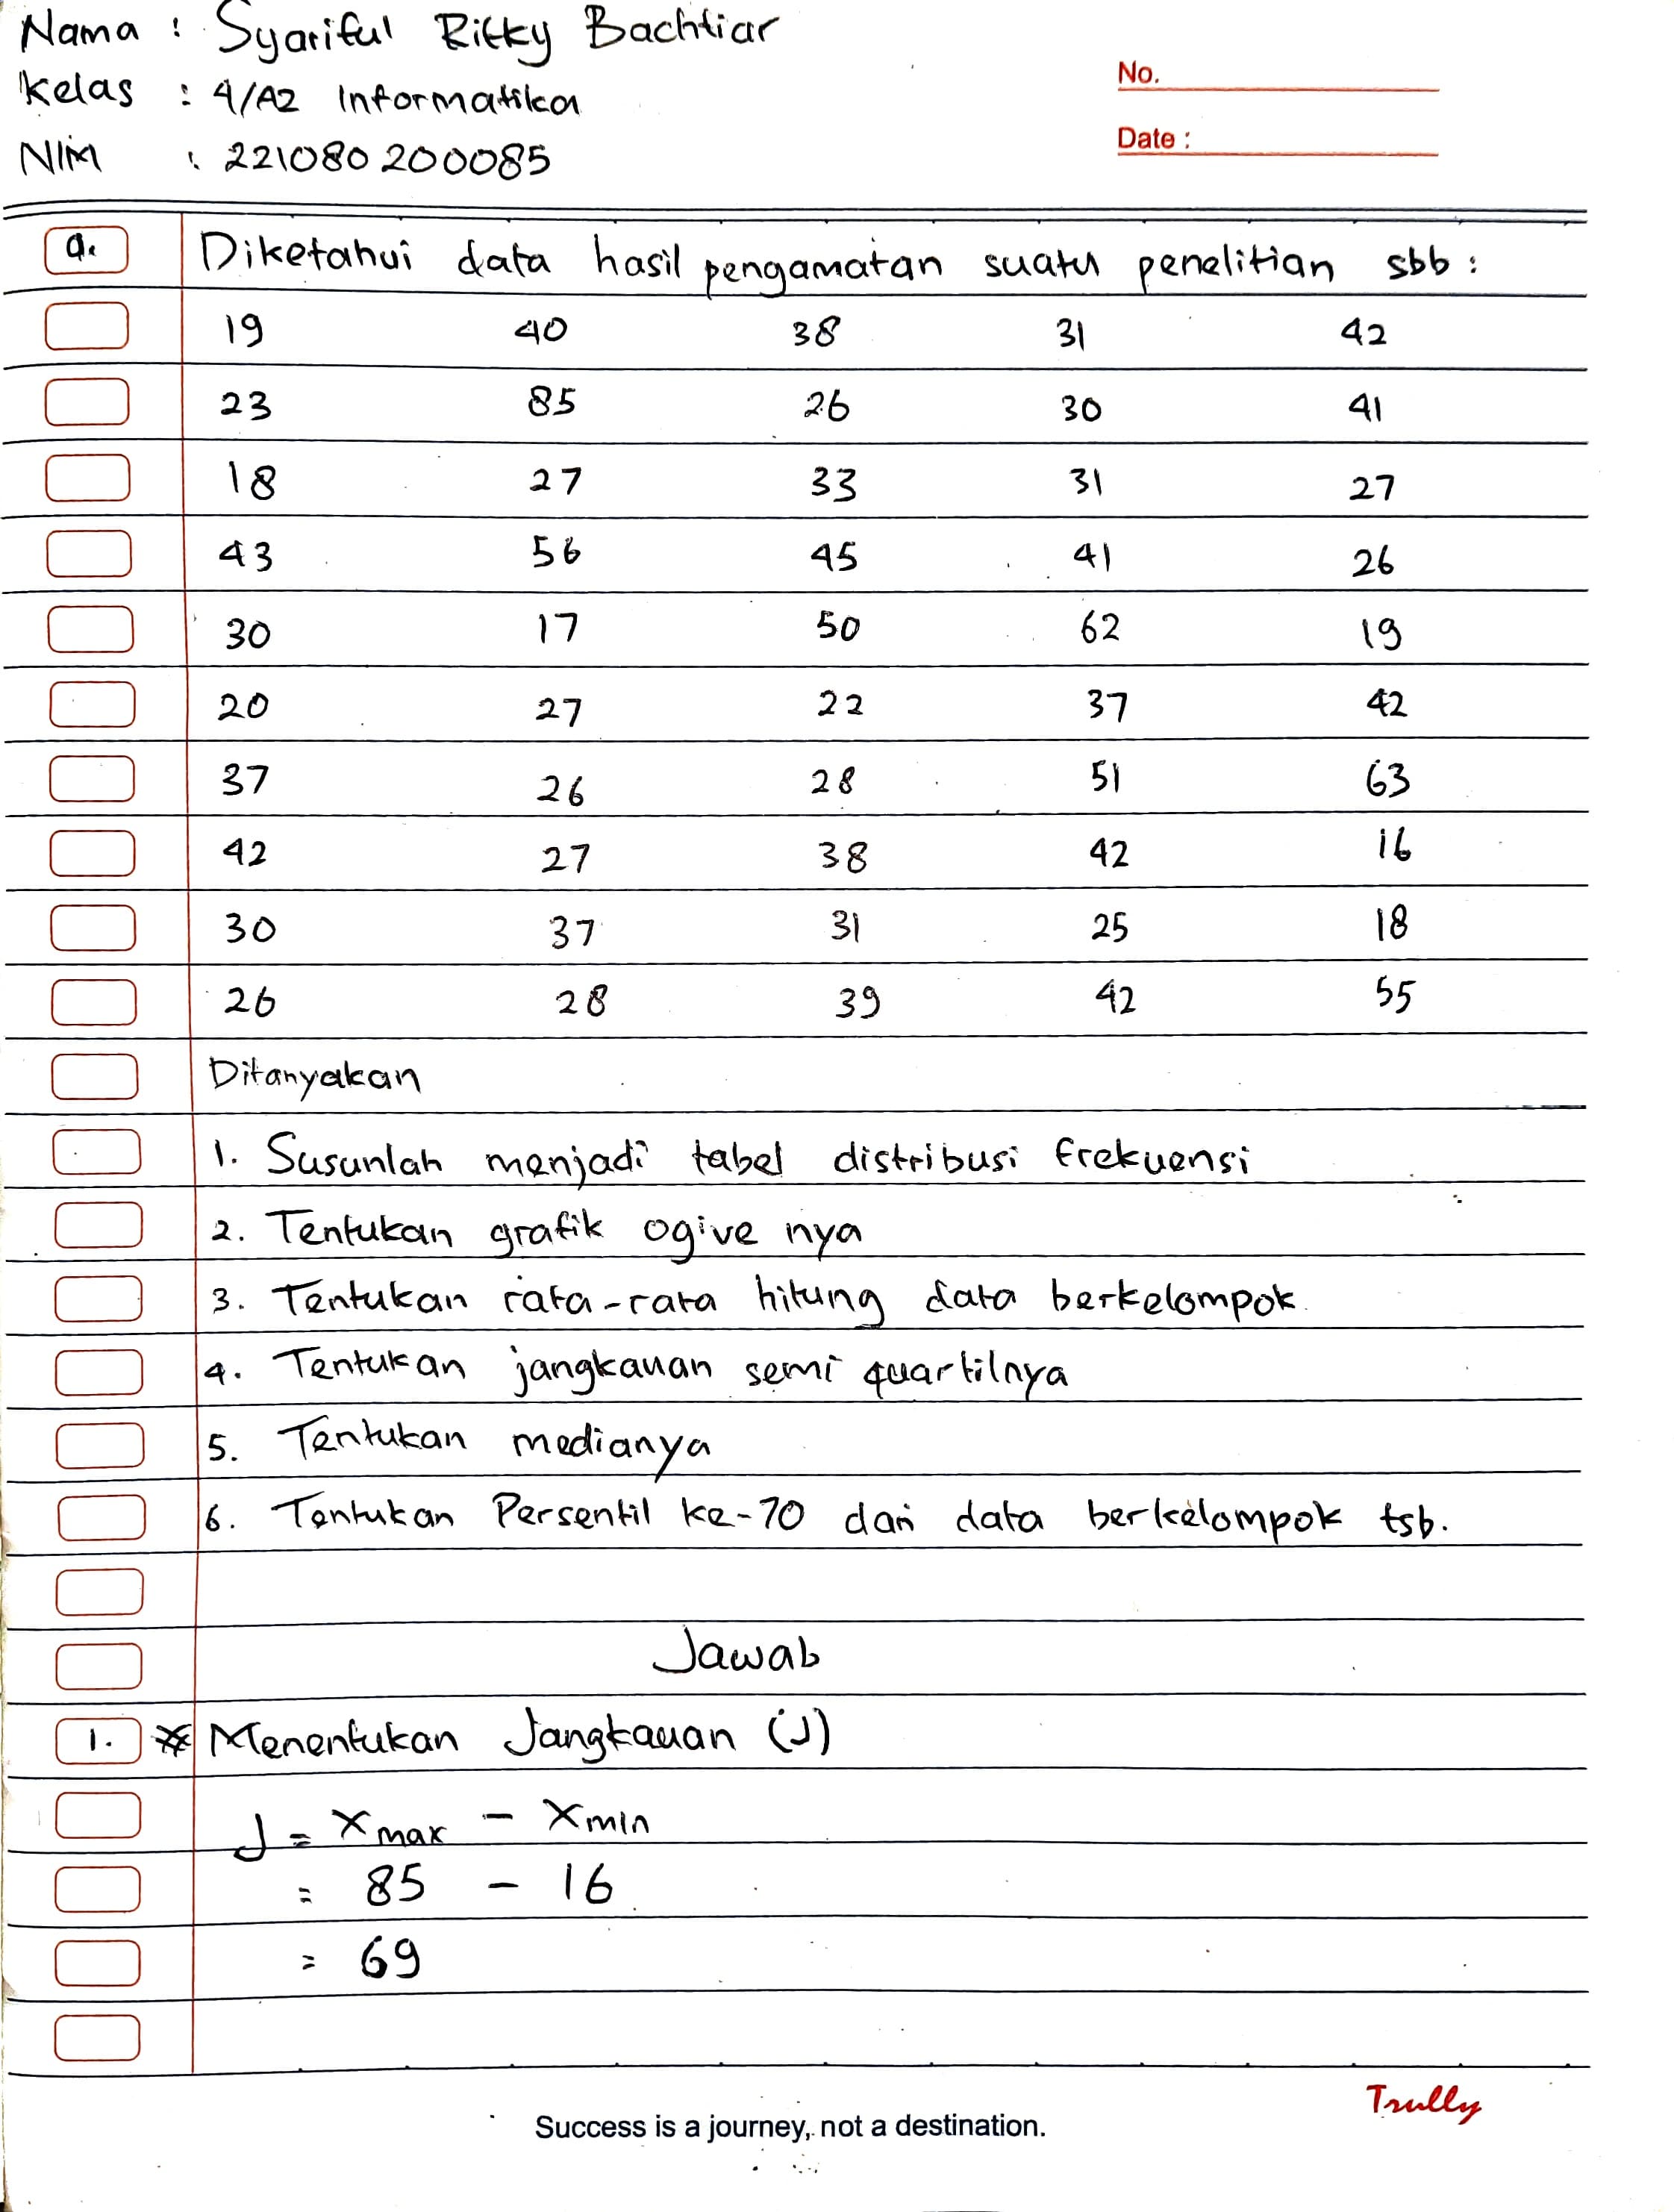 Nama : Syariful Rifky Bachtiar
Kelas : 4/A2 Informatika
No.
Date :
NIM : 221080200085
a. Diketahui data hasil pengamatan suatu penelitian sbb :
19 40 38 31 42
23 85 26 30 41
18 27 33 31 27
43 56 45 41 26
30 17 50 62 19
20 27 22 37 42
37 26 28 51 63
42 27 38 42 16
30 37 31 25 18
26 28 39 42 55
Ditanyakan
1. Susunlah menjadi tabel distribusi frekuensi
2. Tentukan grafik ogive nya
3. Tentukan rata-rata hitung data berkelompok.
4. Tentukan jangkauan semi quartilnya
5. Tentukan medianya
6. Tentukan Persentil ke-70 dari data berkelompok tsb.
Jawab
1. * Menentukan Jangkauan (J)
J = Xmax - Xmin
= 85 - 16
= 69
Trully
Success is a journey, not a destination.